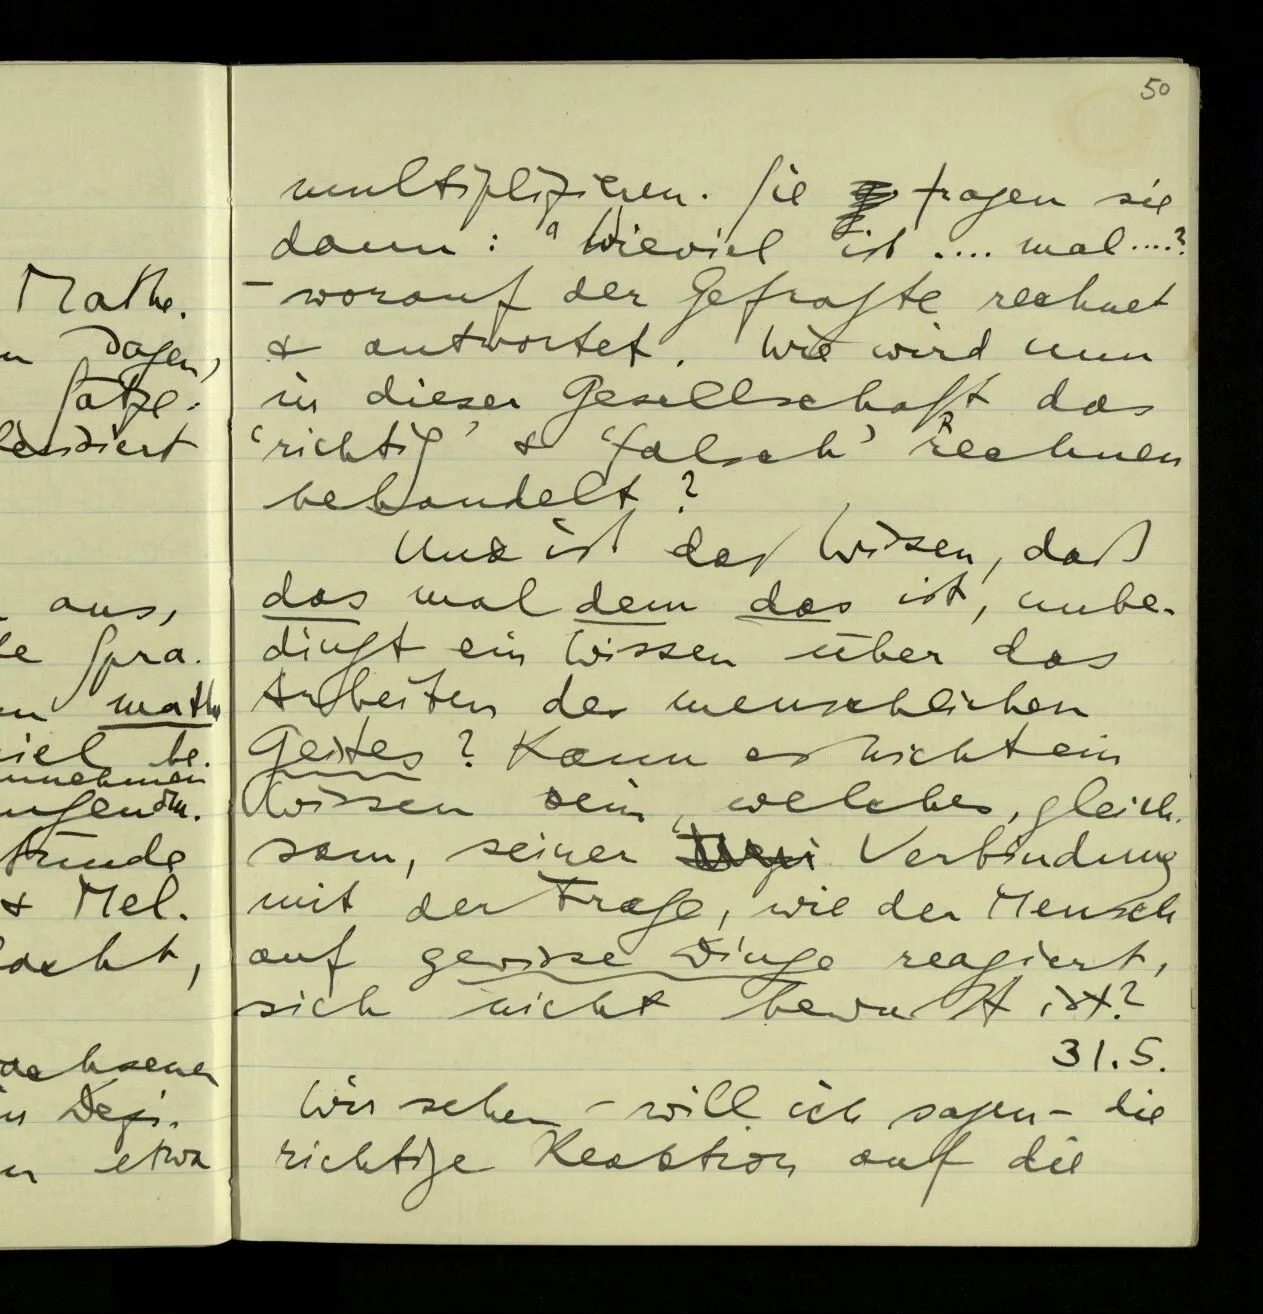 50
Mathe.
Sätze.
aus,
Spra.
math
be.
& Mel.
etwa
multiplizieren. Sie fragen sie
dann: "Wieviel ist .... mal ....?
– worauf der Gefragte rechnet
& antwortet. Wie wird nun
in dieser Gesellschaft das
'richtig' & 'falsch' Rechnen
behandelt?
Und ist das Wissen, daß
das mal dem das ist, unbe-
dingt ein Wissen über das
Arbeiten des menschlichen
Geistes? Kann es nicht ein
Wissen sein, welches, gleich-
sam, seiner Verbindung
mit der Frage, wie der Mensch
auf gewisse Dinge reagiert,
sich nicht bewußt ist?
31.5.
Wir sehen – will ich sagen – die
richtige Reaktion auf die